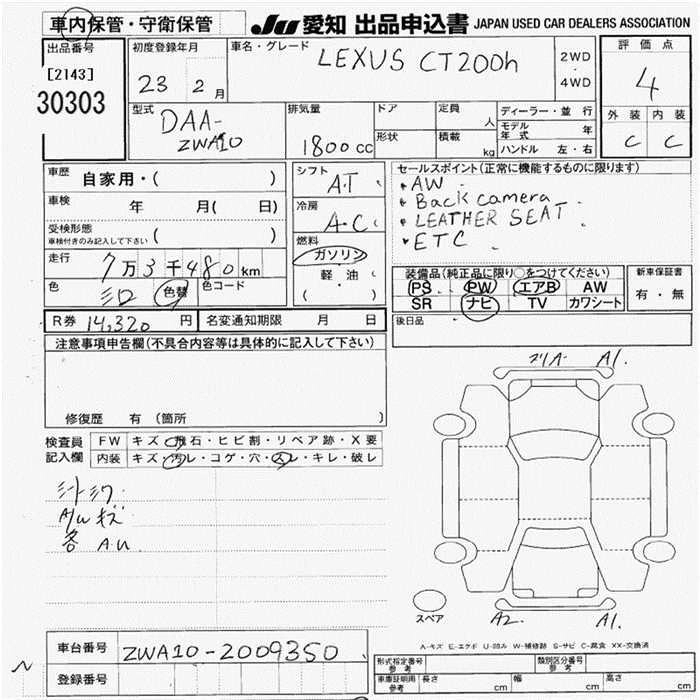 車内保管・守衛保管
JU 愛知 出品申込書 JAPAN USED CAR DEALERS ASSOCIATION
出品番号
[2143]
30303
初度登録年月
23 2 月
車名・グレード
LEXUS CT200h
2WD
・
4WD
評価点
4
外装 内装
C C
型式
DAA-
ZWA10
排気量
1800 cc
ドア
形状
定員 人
積載 kg
ディーラー・並行
モデル年式 年
ハンドル 左・右
車歴
自家用・( )
車検
年 月( 日)
受検形態
車検付きのみ記入して下さい ( )
走行
7万3千480km
色
色替
色コード
シフト
AT
冷房
A・C
燃料
ガソリン
・
軽油
( ・ )
セールスポイント(正常に機能するものに限ります)
AW
Back camera
LEATHER SEAT
ETC
装備品(純正品に限り○をつけてください)
PS PW エアB AW
SR ナビ TV カワシート
新車保証書
有・無
後日品
R券 14,320 円 名変通知期限 月 日
注意事項申告欄(不具合内容等は具体的に記入して下さい)
修復歴 有 (箇所 )
検査員
記入欄
FW キズ・飛石・ヒビ割・リペア跡・X要
内装 キズ・汚レ・コゲ・穴・スレ・キレ・破レ
A1.
スペア
A2. A1.
A-キズ E-エクボ U-凹み W-補修跡 S-サビ C-腐食 XX-交換済
車台番号 ZWA10-2009350
登録番号
形式指定番号 参考
類別区分番号 参考
車庫証明用 参考 長さ cm 幅 cm 高さ cm